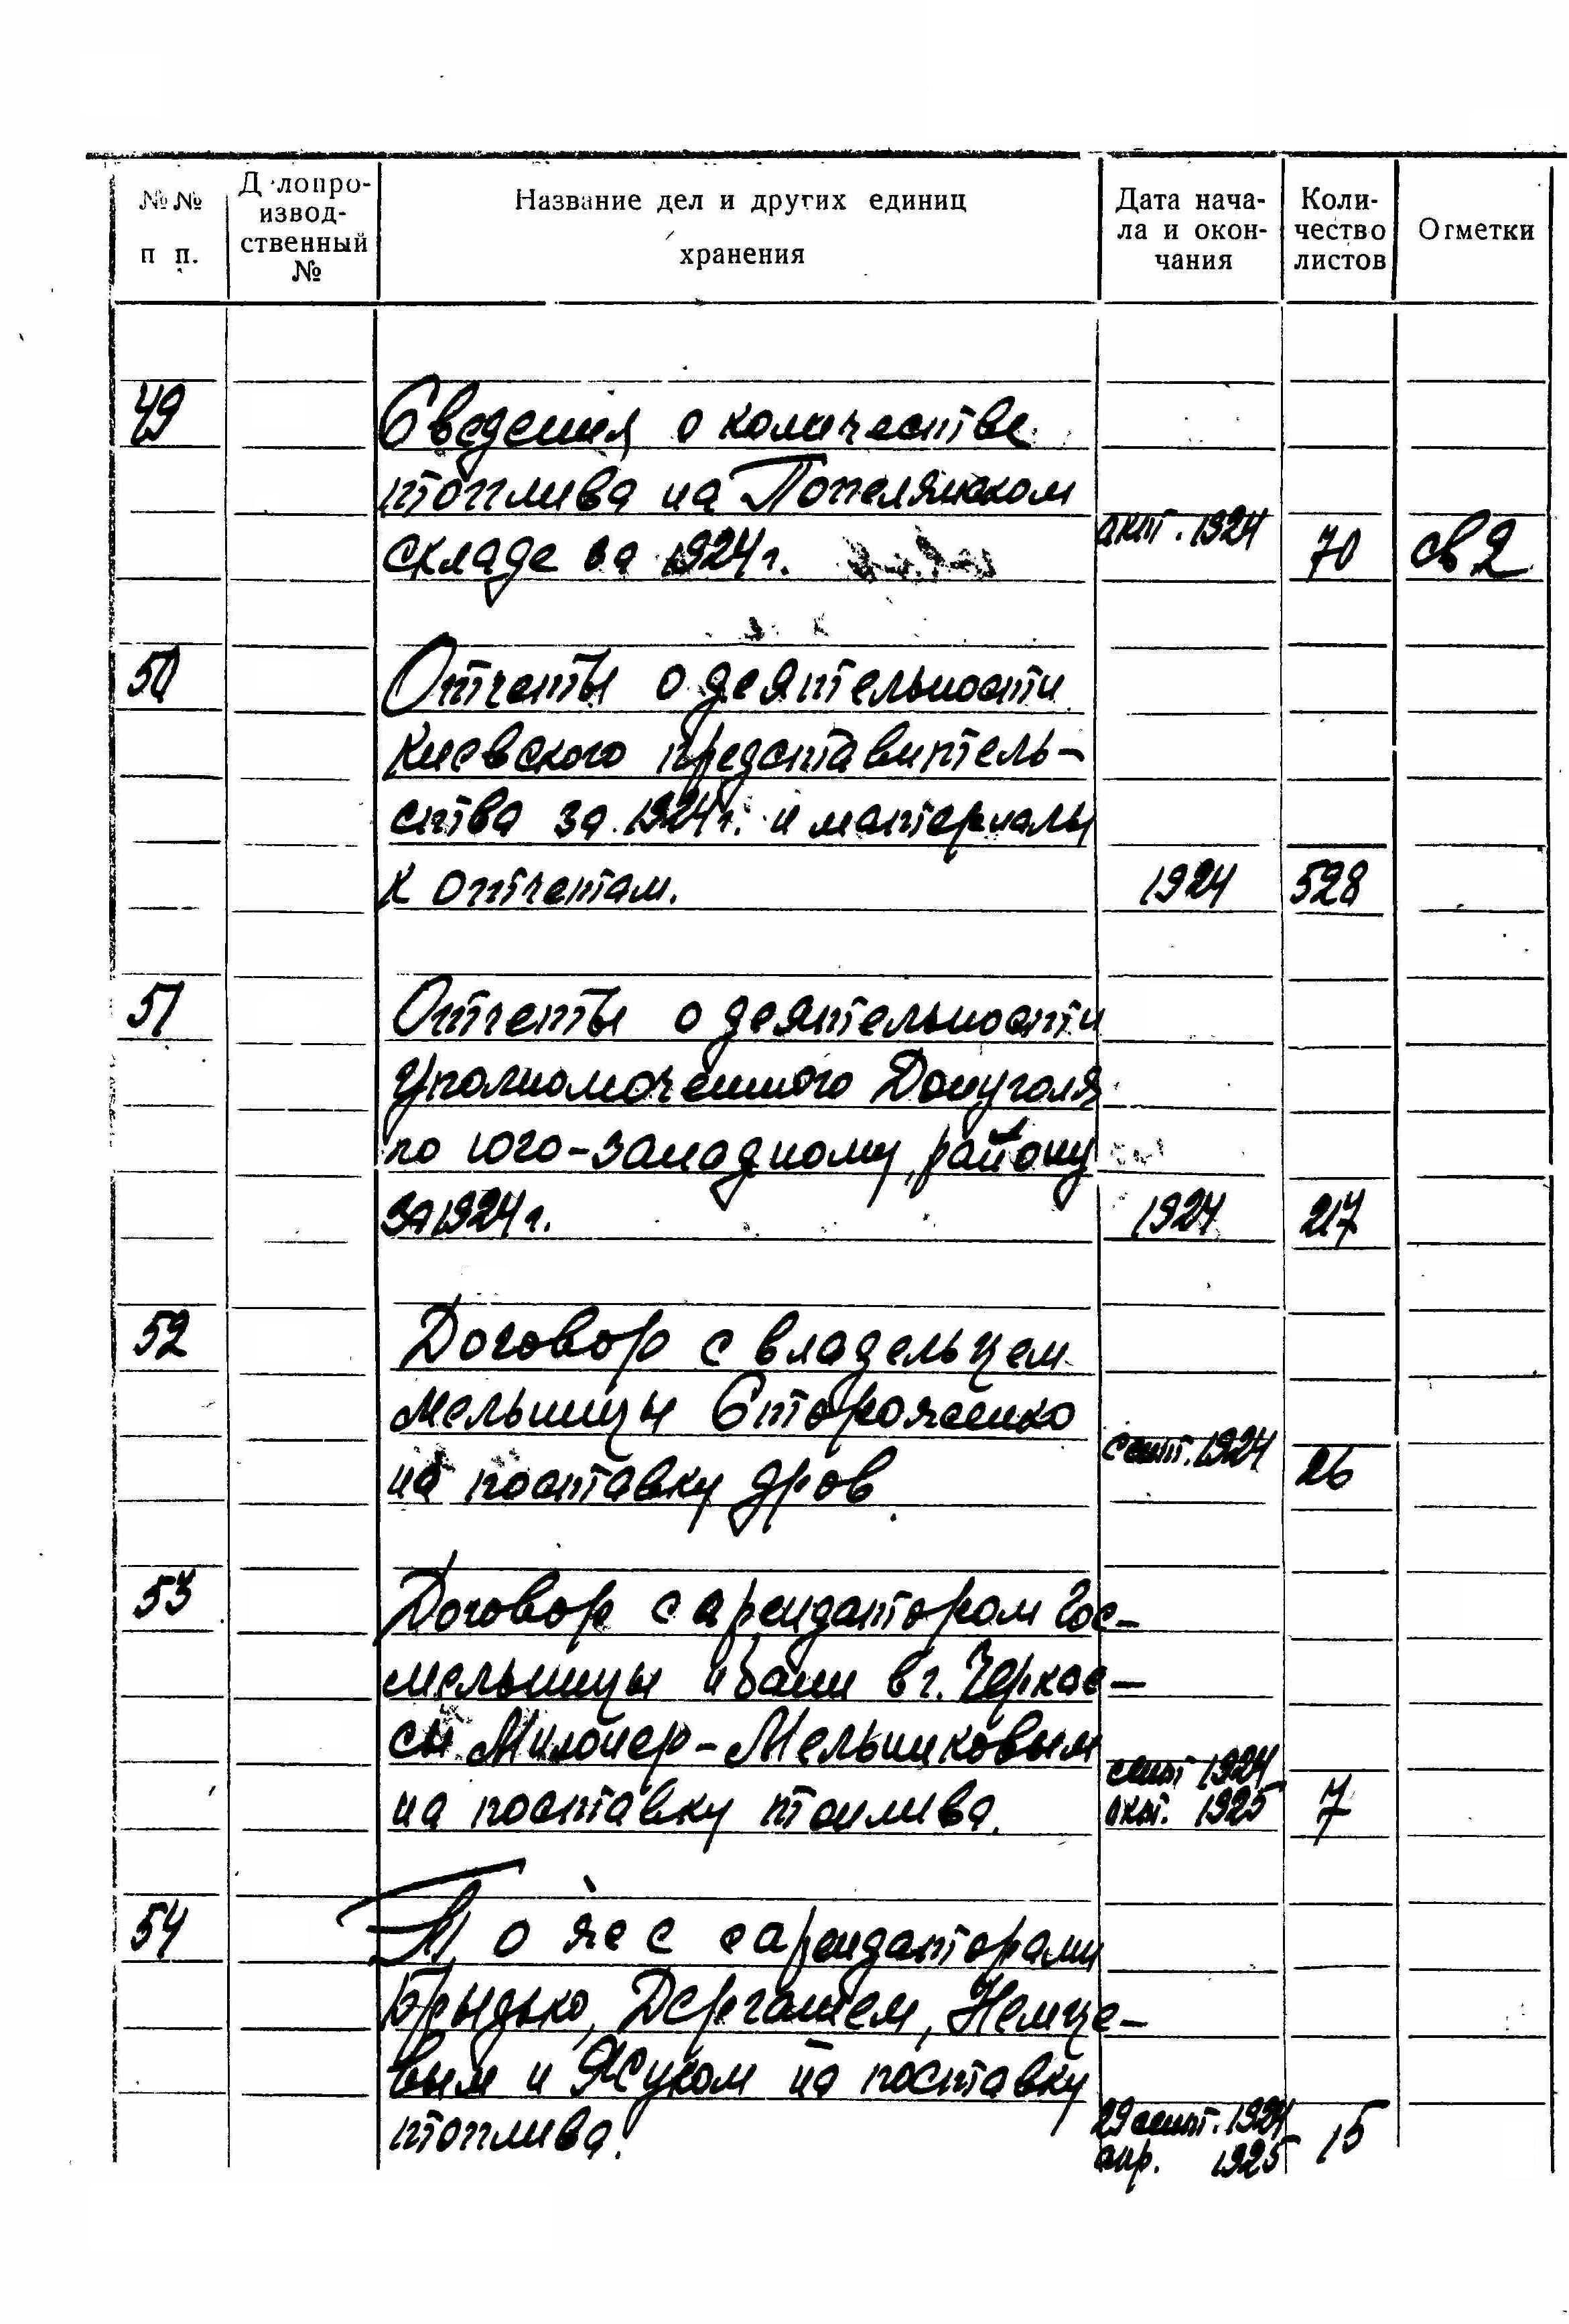 №№ п п.
Делопро-
извод-
ственный
№
Название дел и других единиц
хранения
Дата нача-
ла и окон-
чания
Коли-
чество
листов
Отметки
49 Сведения о количестве
топлива на Попелянском
складе за 1924 г. окт. 1924 70 св 2
50 Отчеты о деятельности
Киевского представитель-
ства за 1924 г. и материалы
к отчетам. 1924 528
51 Отчеты о деятельности
Уполномоченного Донуголя
по юго-западному району
за 1924 г. 1924 217
52 Договор с владельцем
мельницы Стороженко
на поставку дров сент. 1924 26
53 Договор с арендатором Гос-
мельницы и бани в г. Черкас-
сы -Мельниковым сент 1924
на поставку топлива. окт. 1925 7
54 То же с арендаторами
Брыдько, Дергачем, Немце-
вым и Жуком на поставку
топлива. 29 сент. 1924
апр. 1925 15